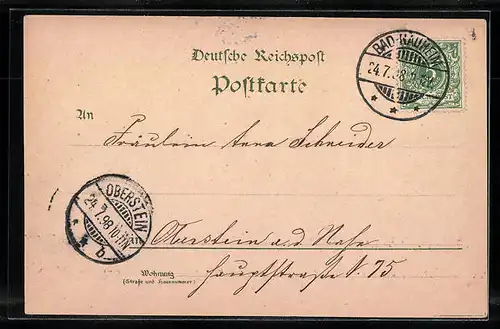 Deutsche Reichspost
Postkarte
BAD-NAUHEIM
24.7.98
An
Fräulein Anna Schneider
OBERSTEIN
24.7.98
b
Oberstein a. d. Nahe
Wohnung
(Straße und Hausnummer)
Hauptstraße N. 75